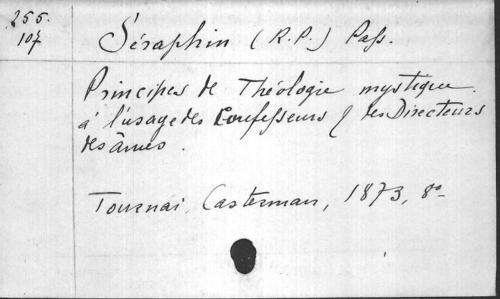 255.
107
Séraphin (R.P.) Pass.
Principes de Théologie mystique
à l'usage des Confesseurs & des Directeurs
des âmes.
Tournai, Casterman, 1873, 8º